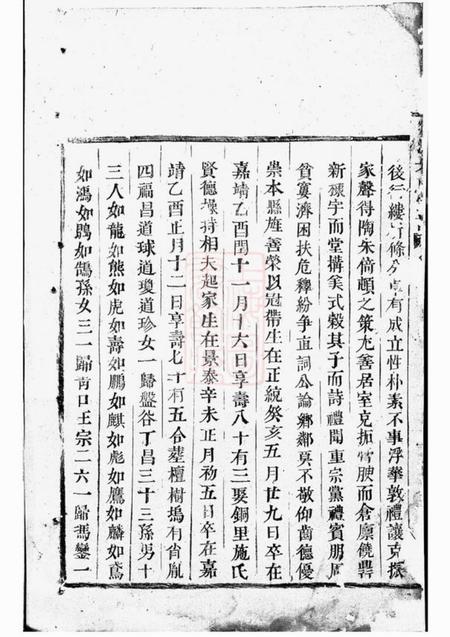 後行縷有條
卓有成立性朴素不事浮華敦禮讓克振
家聲得陶朱倚頓之策尤善居室克拓膏腴而倉廪饒興
新棟宇而堂搆美式榖其子而詩禮聞重宗黨禮賓朋周
貧寠濟困扶危釋紛爭直詞公論鄉鄰莫不敬仰齒德優
崇本縣旌善榮以冠帶生在正統癸亥五月廿九日卒在
嘉靖乙酉閏十一月十六日享壽八十有三娶銅里施氏
賢德操持相夫起家生在景泰辛未正月初五日卒在嘉
靖乙酉正月十二日享壽七十有五合塟檀樹塢有肖胤
四福昌道球道瓊道珍女一歸盤谷丁昌三十三孫男十
三人如龍如熊如虎如壽如鵬如麒如彪如鷹如麟如鳶
如鴻如鵾如鵠孫女三一歸南口王宗二六一歸馮鑾一